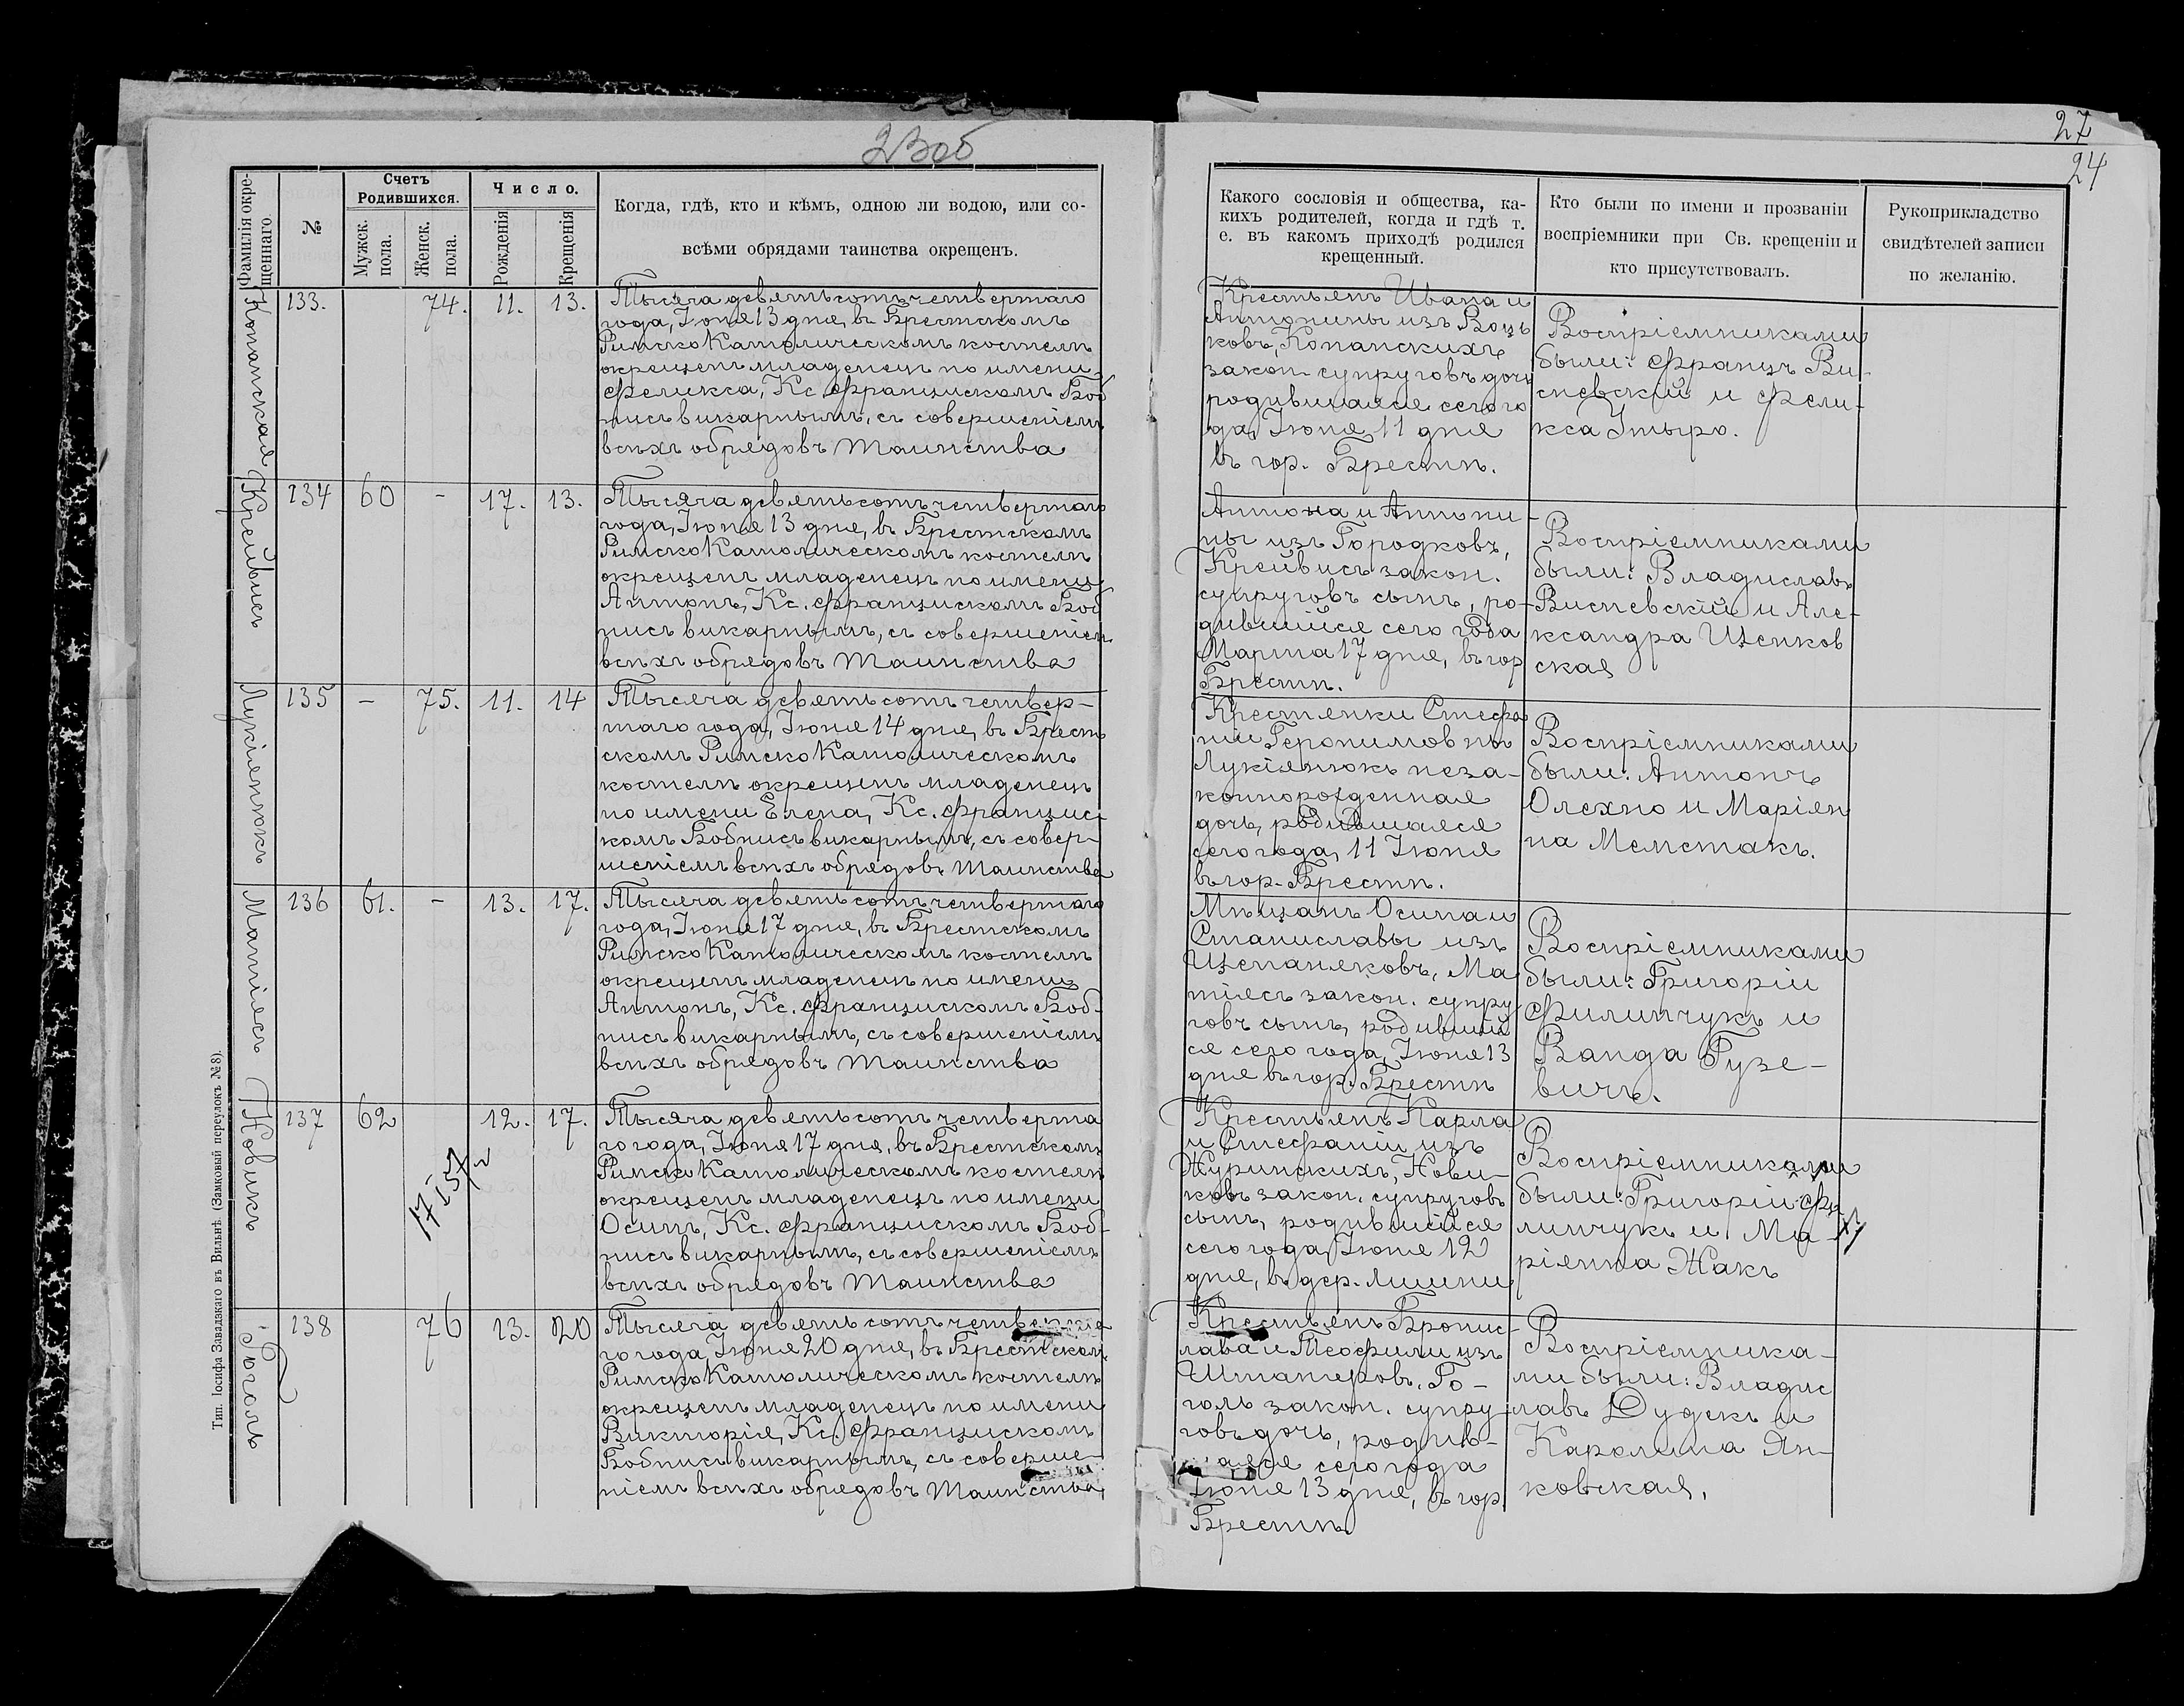 23об
27
24
Фамилія окре-
щеннаго
№
Счетъ
Родившихся.
Мужск.
пола.
Женск.
пола.
Число.
Рожденія
Крещенія
Когда, гдѣ, кто и кѣмъ, одною ли водою, или со-
всѣми обрядами таинства окрещенъ.
Какого сословія и общества, ка-
кихъ родителей, когда и гдѣ т.
е. въ какомъ приходѣ родился
крещенный.
Кто были по имени и прозваніи
воспріемники при Св. крещеніи и
кто присутствовалъ.
Рукоприкладство
свидѣтелей записи
по желанію.
Копанская
133.
74.
11.
13.
Тысяча девятьсотъ четвертаго
года, Іюня 13 дня, въ Брестскомъ
Римско Католическомъ костелѣ
окрещенъ младенецъ по имени
Феликса, Кс. Францискомъ Боб
нисъ викарнымъ, съ совершеніемъ
всѣхъ обрядовъ Таинства
Крестьянъ Ивана и
Антонины изъ Воцъ
ковъ, Копанскихъ
закон. супруговъ дочь
родившаяся сего го
да, Іюня 11 дня
въ гор. Брестѣ.
Воспріемниками
были: Францъ Ви-
сневскій и Фели-
кса Утыро.
Крейвисъ
134
60
-
17.
13.
Тысяча девятьсотъ четвертаго
года, Іюня 13 дня, въ Брестскомъ
Римско Католическомъ костелѣ
окрещенъ младенецъ по имени
Антонъ, Кс. Францискомъ Боб
нисъ викарнымъ, съ совершеніем
всѣхъ обрядовъ Таинства
Антона и Антони-
ны изъ Городковъ,
Крейвисъ закон.
супруговъ сынъ, ро-
дившійся сего года
Марта 17 дня, въ гор
Брестѣ.
Воспріемниками
были: Владиславъ
Висневскій и Але-
ксандра Щенков
ская
Лукіянюкъ
135
-
75.
11.
14
Тысяча девятьсотъ четвер-
таго года, Іюня 14 дня, въ Брест
скомъ Римско Католическомъ
костелѣ окрещенъ младенецъ
по имени Елена, Кс. Францис-
комъ Бобнисъ викарнымъ, съ совер-
шеніемъ всѣхъ обрядовъ Таинства
Крестянки Стефа
ніи Геронимовны
Лукіянюкъ неза-
коннорожденная
дочь, родившаяся
сего года, 11 Іюня
въ гор. Брестѣ.
Воспріемниками
были: Антонъ
Олехно и Маріян
на Мемстакъ.
Матіясъ
136
61.
-
13.
17.
Тысяча девятьсотъ четвертаго
года, Іюня 17 дня, въ Брестскомъ
Римско Католическомъ костелѣ
окрещенъ младенецъ по имени
Антонъ, Кс. Францискомъ Боб-
нисъ викарнымъ, съ совершеніемъ
всѣхъ обрядовъ Таинства
Мѣщанъ Осипа и
Станиславы изъ
Щепаняковъ, Ма
тіясъ закон. супру
говъ сынъ, родившій
ся сего года, Іюня 13
дня въ гор. Брестѣ
Воспріемниками
были: Григорій
Филипчукъ и
Ванда Гузе-
вичъ.
Новикъ
137
62
12.
17.
Тысяча девятьсотъ четверта
го года, Іюня 17 дня, въ Брестскомъ
Римско Католическомъ костелѣ
окрещенъ младенецъ по имени
Осипъ, Кс. Францискомъ Боб-
нисъ викарнымъ, съ совершеніемъ
всѣхъ обрядовъ Таинства
Крестьянъ Карла
и Стефаніи изъ
Журинскихъ, Нови-
ковъ закон. супруговъ
сынъ, родившійся
сего года Іюня 12
дня, въ дер.
Воспріемниками
были: Григорій Фи-
липчукъ и Ма-
ріянна Жакъ
Гоголь
138
76
13.
20
Тысяча девятьсотъ четверта
го года, Іюня 20 дня, въ Брестскомъ
Римско Католическомъ костелѣ
окрещенъ младенецъ по имени
Викторія, Кс. Францискомъ
Бобнисъ викарнымъ, съ соверше-
ніемъ всѣхъ обрядовъ Таинства,
Крестьянъ Бронис-
лава и Теофили изъ
Штаперовъ, Го-
голь закон. супру-
говъ дочь, родив-
аяся сего года
Іюня 13 дня, въ гор
Брестѣ
Воспріемника-
ми были: Владис
лавъ Дудекъ и
Каролина Ян-
ковская,
Тип. Іосифа Завадзкаго въ Вильнѣ. (Замковый переулокъ №8).